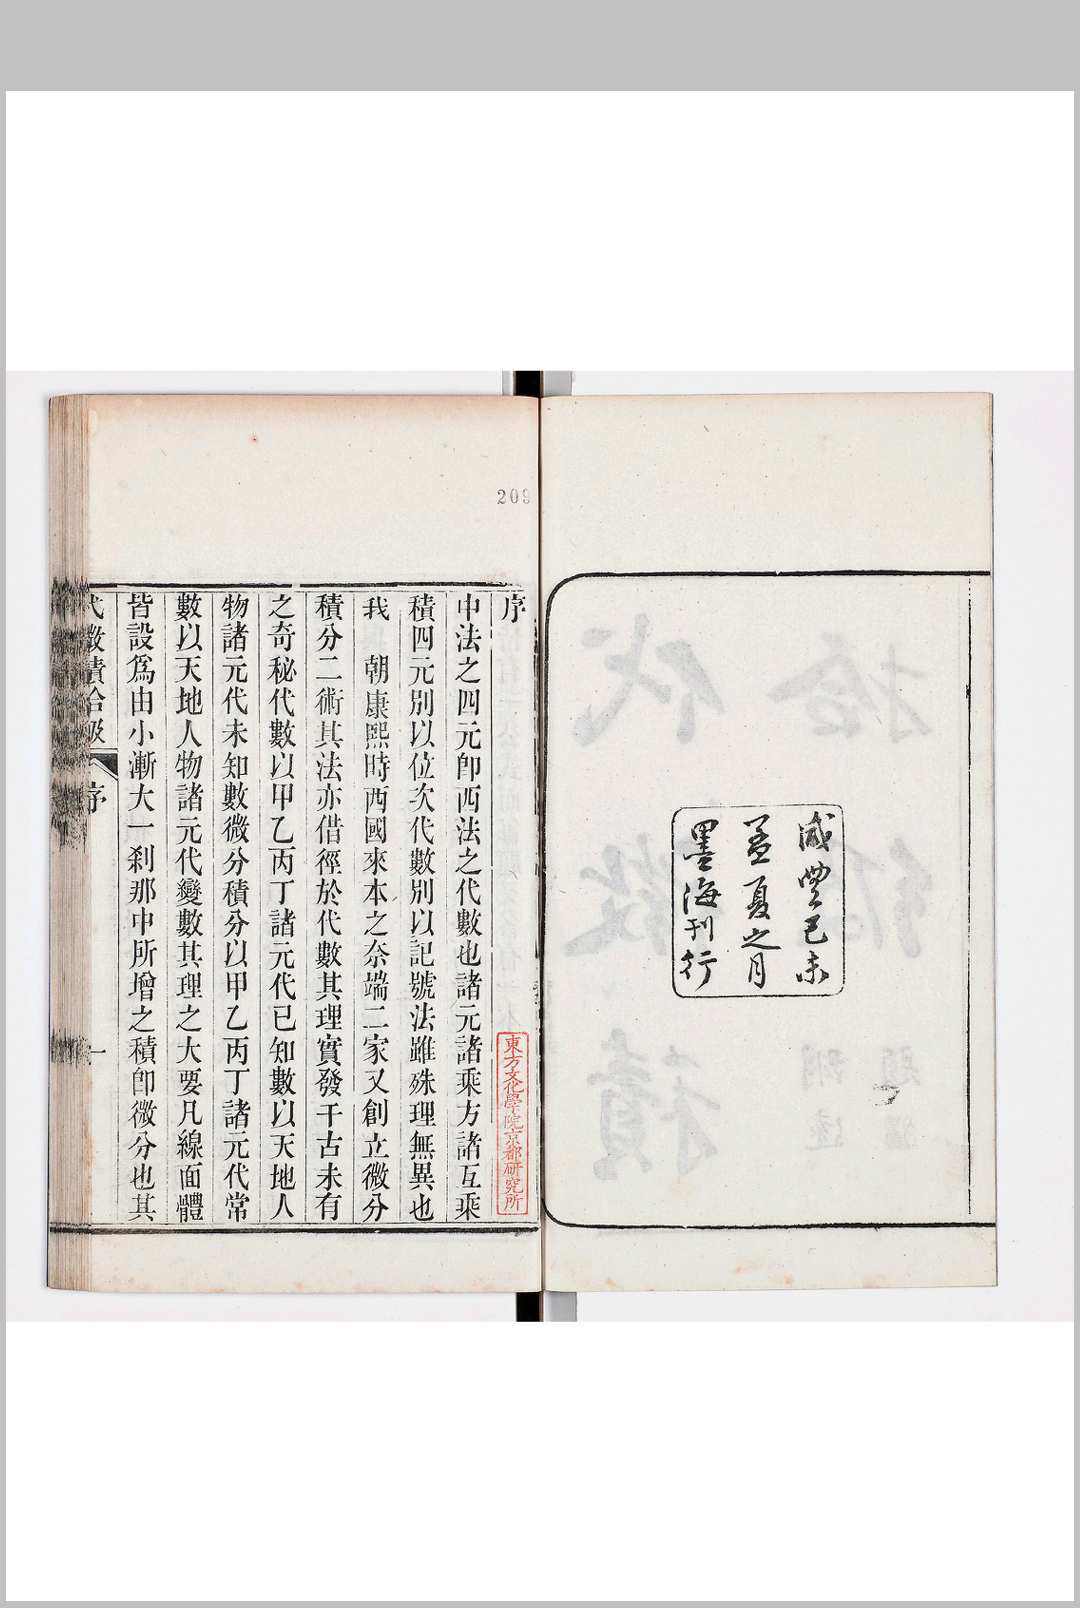 咸豐己未
孟夏之月
墨海刊行
209
序
東方文化學院京都研究所
中法之四元卽西法之代數也諸元諸乘方諸互乘
積四元別以位次代數別以記號法雖殊理無異也
我　朝康熙時西國來本之奈端二家又創立微分
積分二術其法亦借徑於代數其理實發千古未有
之奇秘代數以甲乙丙丁諸元代已知數以天地人
物諸元代未知數微分積分以甲乙丙丁諸元代常
數以天地人物諸元代變數其理之大要凡線面體
皆設爲由小漸大一刹那中所增之積卽微分也其
代微積拾級
序
一